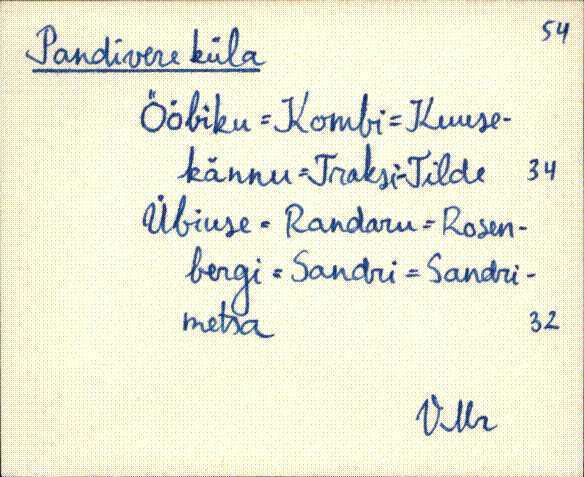 54
Pandivere küla
Ööbiku = Kombi = Kuuse-
kännu = Traksi-Tilde 34
Übiuse = Randaru = Rosen-
bergi = Sandri = Sandri-
metsa 32
VMr